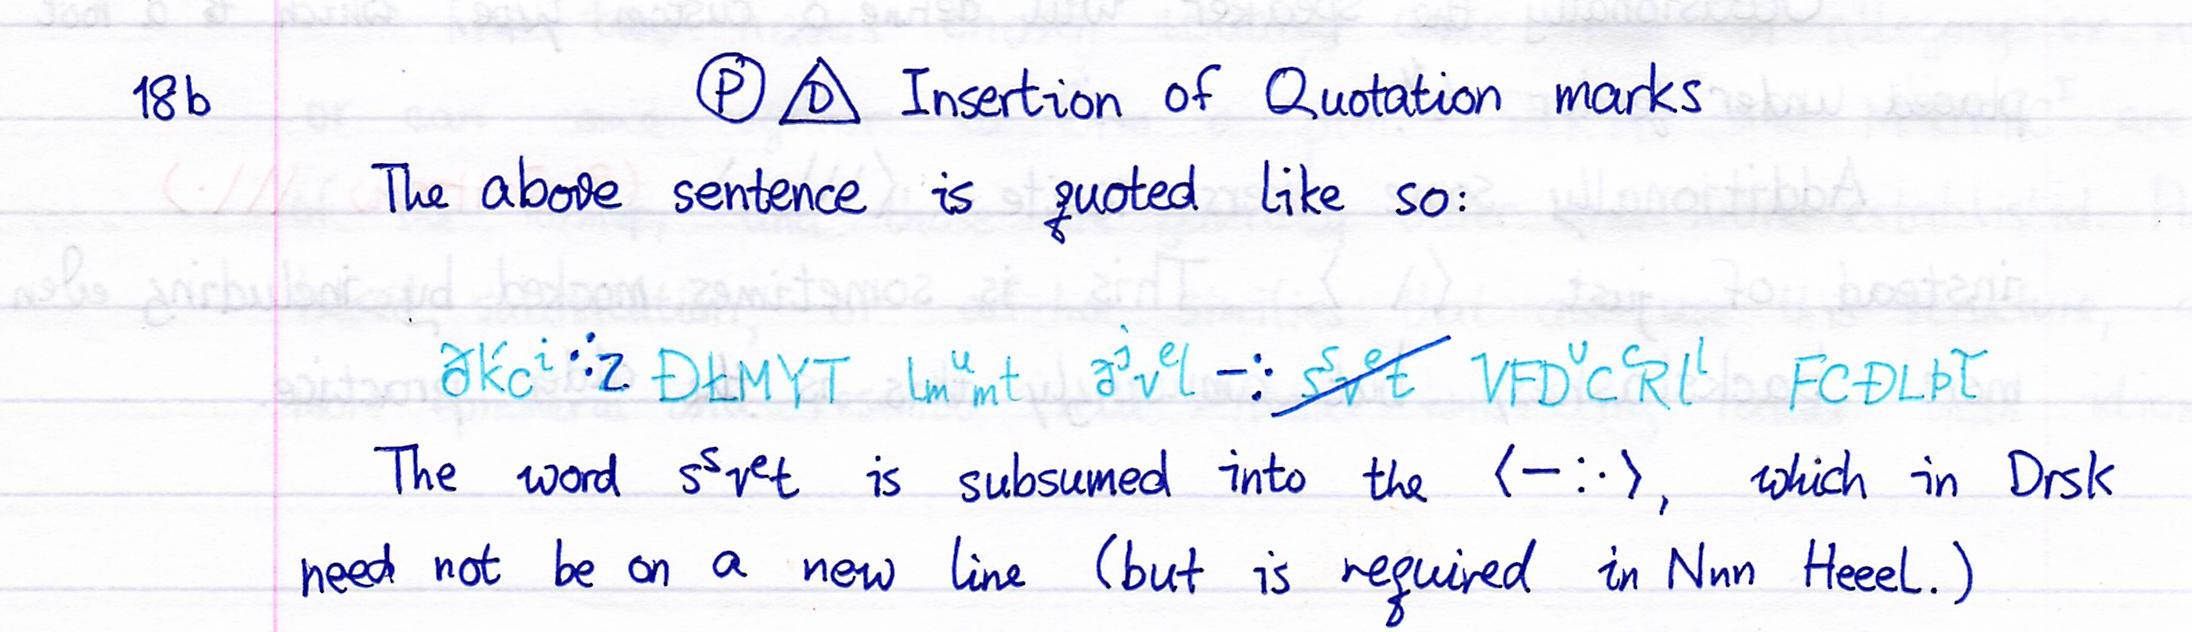 18b Ⓟ D Insertion of Quotation marks
The above sentence is quoted like so:
ƏKcⁱ ⁖2 ĐŁMYT lmᵘmt ə̀ʲvᵉl –⁖ sˢvᵉt VFDᵘCᶜRlˡ FCĐLÞT
The word sˢvᵉt is subsumed into the ⟨–:·⟩, which in Drsk
need not be on a new line (but is required in Nnn Heeel.)